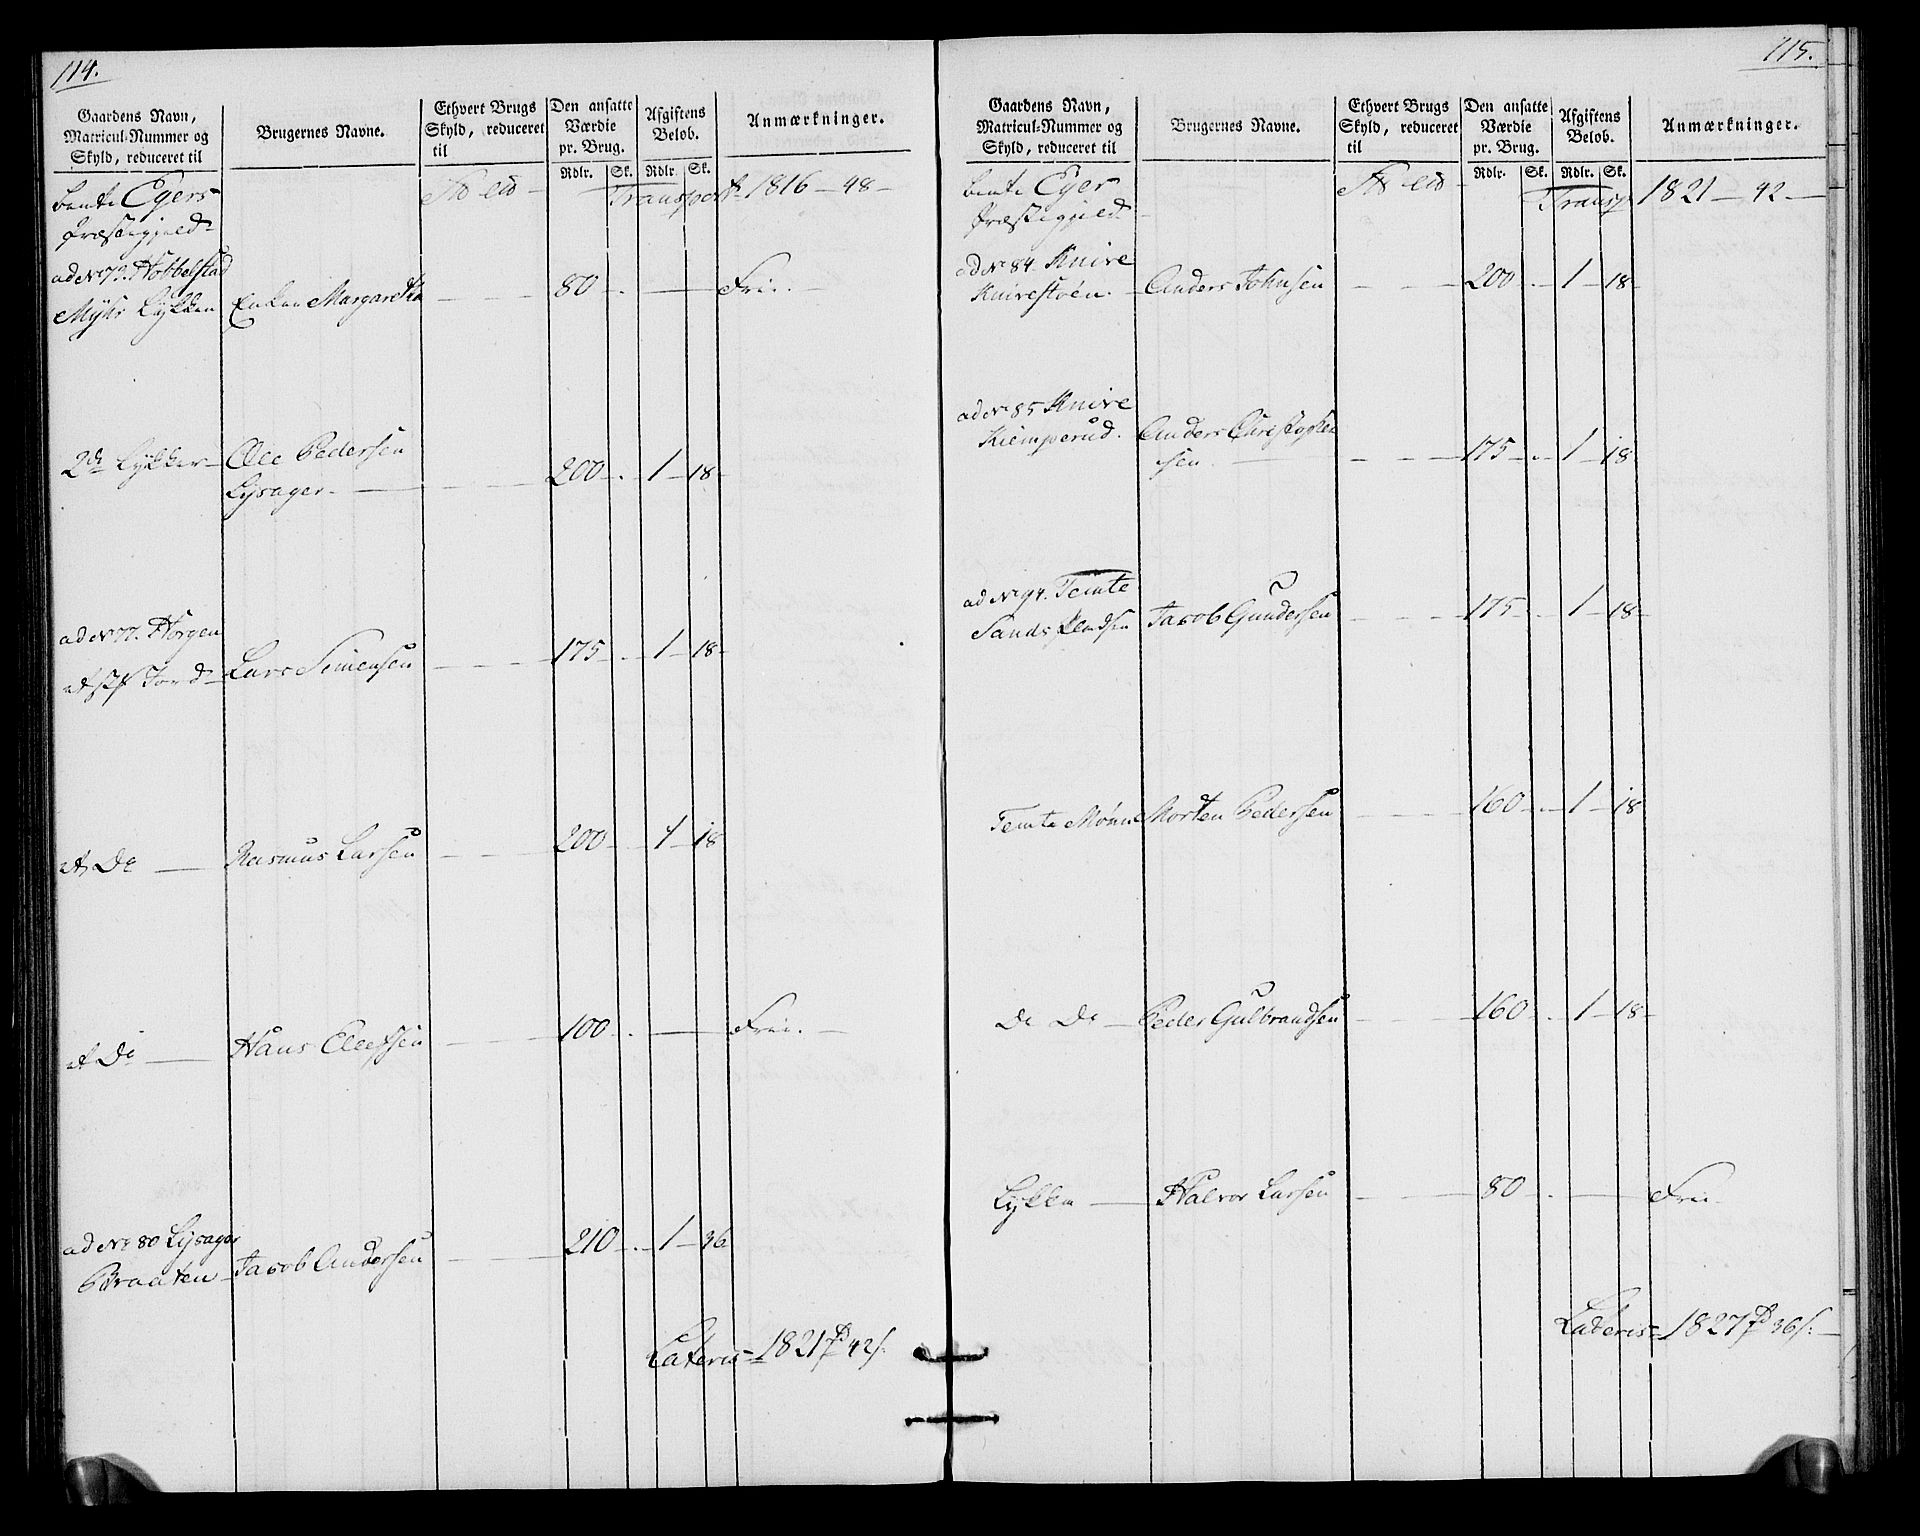 114.
Gaardens Navn,
Matricul-Nummer og
Skyld, reduceret til
Brugernes Navne.
Ethvert Brugs
Skyld, reduceret
til
Den ansatte
Værdie
pr. Brug.
Rdlr. Sk.
Afgiftens
Beløb.
Rdlr. Sk.
Anmærkninger.
Egers Transport 1816 - 48 -
Præstegjeld
ad No 73. Hobbelstad
Myhr Lykken Enken Margaretha 80 - Frie.
2de Lykker Ole Pedersen
Lysager 200 - 1 - 18 -
ad No 77. Horgen
Lars Simensen 175 - 1 - 18 -
Do Rasmus Larsen 200 - 1 - 18
Do Hans Ellefsen 100 - Frie.
ad No 80 Lysager
Braaten Jacob Andersen 210 - 1 - 36.
Lateris 1821 42
115.
Gaardens Navn,
Matricul-Nummer og
Skyld, reduceret til
Brugernes Navne.
Ethvert Brugs
Skyld, reduceret
til
Den ansatte
Værdie
pr. Brug.
Rdlr. Sk.
Afgiftens
Beløb.
Rdlr. Sk.
Anmærkninger.
Eger Transp 1821 - 42 -
Præstegjeld
ad No 84. Knive
Knivestøen. Anders Johnsen 200 - 1 - 18 -
ad No 85 Knive
Kiemperud. Anders Christophersen
175 - 1 - 18
ad No 94. Temte
Jacob Gundersen 175 - 1 - 18 -
Temte Moen Morten Pedersen 160 - 1 - 18
Do Do Peder Gulbrandsen 160 - 1 - 18 -
Lykke Halvor Larsen 80 - Frie
Lateris 1827 36